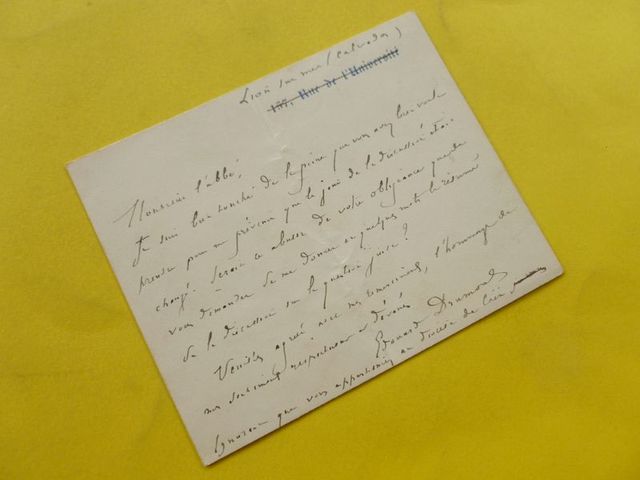 Lion sur mer (Calvados)
157, Rue de l'Université
Monsieur l'abbé,
Je suis bien touché de la peine que vous avez bien voulu
prendre pour me prévenir que le jour de la discussion était
changé. Serait ce abuser de votre obligeance que de
vous demander de me donner en quelques mots le résumé
de la discussion sur la question juive ?
Veuillez agréer avec mes remerciements, l'hommage de
mes sentiments respectueux et dévoués
Edouard Drumont
que vous apparteniez au diocèse de